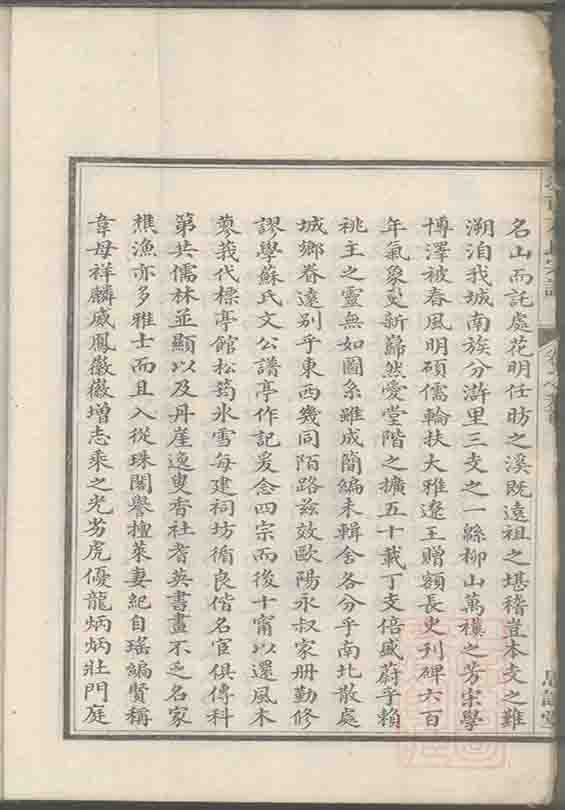 名山而託處花明任昉之溪既遠祖之堪稽豈本支之難
溯洎我城南族分滸里三支之一縣柳山萬機之芳宗學
博澤被春風明碩儒輪扶大雅遼王贈額長史刊碑六百
年氣象更新巋然愛堂階之擴五十載丁支倍盛蔚乎賴
祧主之靈無如圖系雖成簡編未輯舍各分乎南北散處
城鄉眷遠別乎東西幾同陌路茲效歐陽永叔家册勤修
謬學蘇氏文公譜亭作記爰念四宗而後十甯以還風木
蓼莪代標亭館松筠氷雪每建祠坊循良偕名宦俱傳科
第共儒林並顯以及丹崖逸叟香社耆英書畫不乏名家
樵漁亦多雅士而且入從珠閣譽擅萊妻紀自瑤編賢稱
韋母祥麟威鳳徽徽增志乘之光劣虎優龍炳炳壯門庭